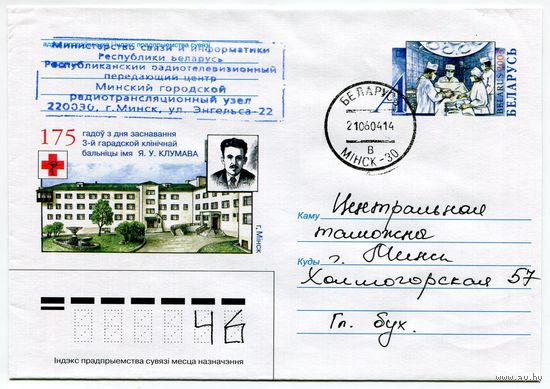 адпраўшчыка і індэкс прадпрыемства сувязі
Министерство связи и информатики
Республики Беларусь
Республиканский радиотелевизионный
передающий центр
Минский городской
радиотрансляционный узел
220030, г.Минск, ул. Энгельса-22
А
BELARUS 2004
БЕЛАРУСЬ
БЕЛАРУСЬ
21060414
В
МІНСК-30
175 гадоў з дня заснавання
3-й гарадской клінічнай
бальніцы імя Я. У. КЛУМАВА
г. Мінск
Каму Центральная
таможня
Куды г. Минск
Холмогорская 57
Гл. бух.
46
Індэкс прадпрыемства сувязі месца назначэння
www.au.hu